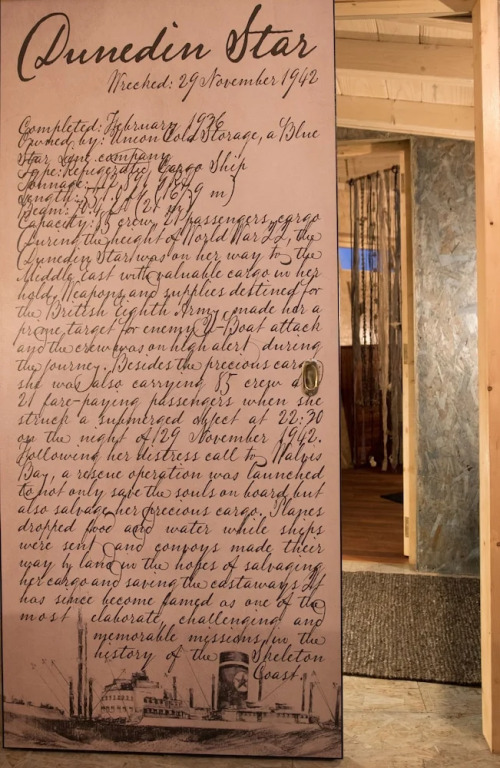 Dunedin Star
Wrecked: 29 November 1942
Completed: February 1936
Owned by: Union Cold Storage, a Blue
Star Line company
Type: Refrigerated Cargo Ship
Tonnage:
Length:
Beam:
Capacity: 85 crew, 21 passengers, cargo
During the height of World War II, the
Dunedin Star was on her way to the
Middle East with valuable cargo in her
hold. Weapons and supplies destined for
the British Eighth Army made her a
prime target for enemy U-Boat attack
and the crew was on high alert during
the journey. Besides the precious cargo
she was also carrying 85 crew and
21 fare-paying passengers when she
struck a submerged object at 22:30
on the night of 29 November 1942.
Following her distress call to Walvis
Bay, a rescue operation was launched
to not only save the souls on board but
also salvage her precious cargo. Planes
dropped food and water while ships
were sent and convoys made their
way by land in the hopes of salvaging
her cargo and saving the castaways. It
has since become famed as one of the
most elaborate, challenging and
memorable missions in the
history of the Skeleton
Coast.